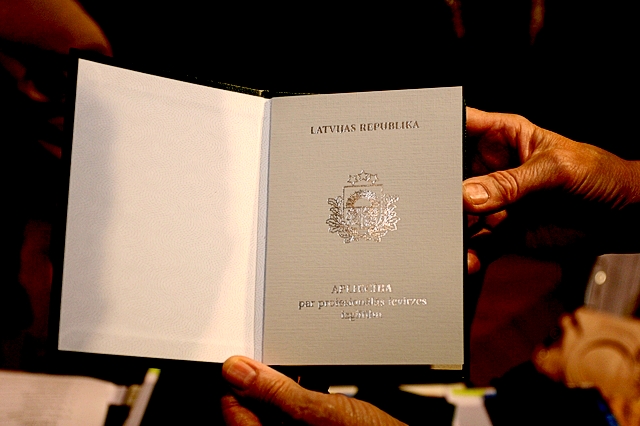 LATVIJAS REPUBLIKA
APLIECĪBA
par profesionālās ievirzes
izglītību